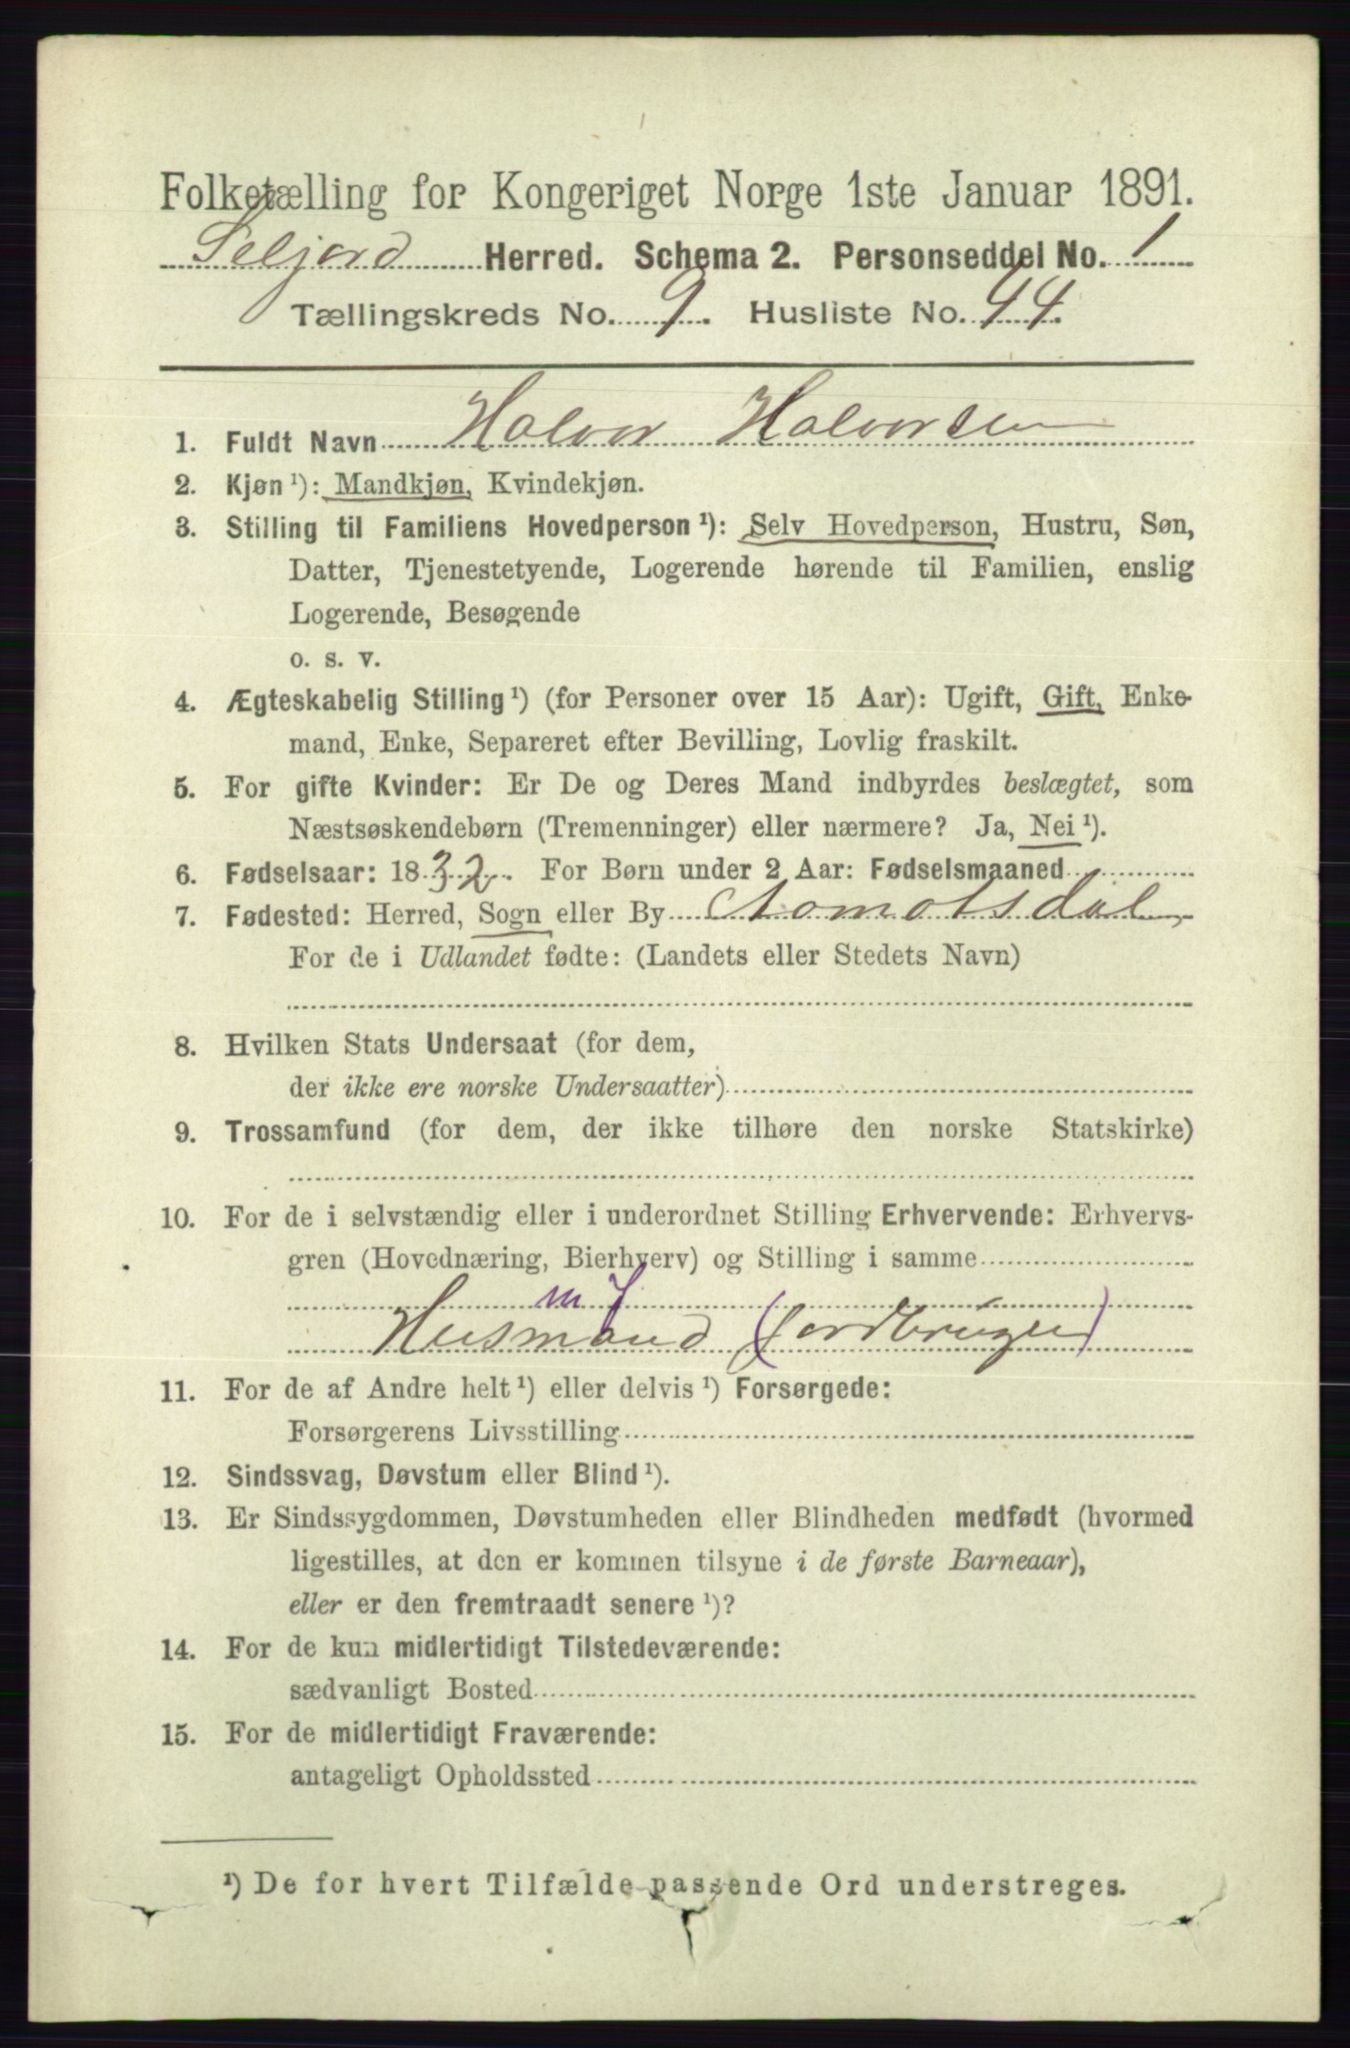 Folketælling for Kongeriget Norge 1ste Januar 1891.
Seljord Herred. Schema 2. Personseddel No. 1
Tællingskreds No. 9. Husliste No. 44.
1. Fuldt Navn Halvor Halvorsen
2. Kjøn ¹): Mandkjøn, Kvindekjøn.
3. Stilling til Familiens Hovedperson ¹): Selv Hovedperson, Hustru, Søn,
Datter, Tjenestetyende, Logerende hørende til Familien, enslig
Logerende, Besøgende
o. s. v.
4. Ægteskabelig Stilling ¹) (for Personer over 15 Aar): Ugift, Gift, Enke-
mand, Enke, Separeret efter Bevilling, Lovlig fraskilt.
5. For gifte Kvinder: Er De og Deres Mand indbyrdes beslægtet, som
Næstsøskendebørn (Tremenninger) eller nærmere? Ja, Nei ¹).
6. Fødselsaar: 1832. For Børn under 2 Aar: Fødselsmaaned
7. Fødested: Herred, Sogn eller By Aamotsdal,
For de i Udlandet fødte: (Landets eller Stedets Navn)
8. Hvilken Stats Undersaat (for dem,
der ikke ere norske Undersaatter)
9. Trossamfund (for dem, der ikke tilhøre den norske Statskirke)
10. For de i selvstændig eller i underordnet Stilling Erhvervende: Erhvervs-
gren (Hovednæring, Bierhverv) og Stilling i samme
m J
Husmand (Jordbruger)
11. For de af Andre helt ¹) eller delvis ¹) Forsørgede:
Forsørgerens Livsstilling
12. Sindssvag, Døvstum eller Blind ¹).
13. Er Sindssygdommen, Døvstumheden eller Blindheden medfødt (hvormed
ligestilles, at den er kommen tilsyne i de første Barneaar),
eller er den fremtraadt senere ¹)?
14. For de kun midlertidigt Tilstedeværende:
sædvanligt Bosted
15. For de midlertidigt Fraværende:
antageligt Opholdssted
¹) De for hvert Tilfælde passende Ord understreges.